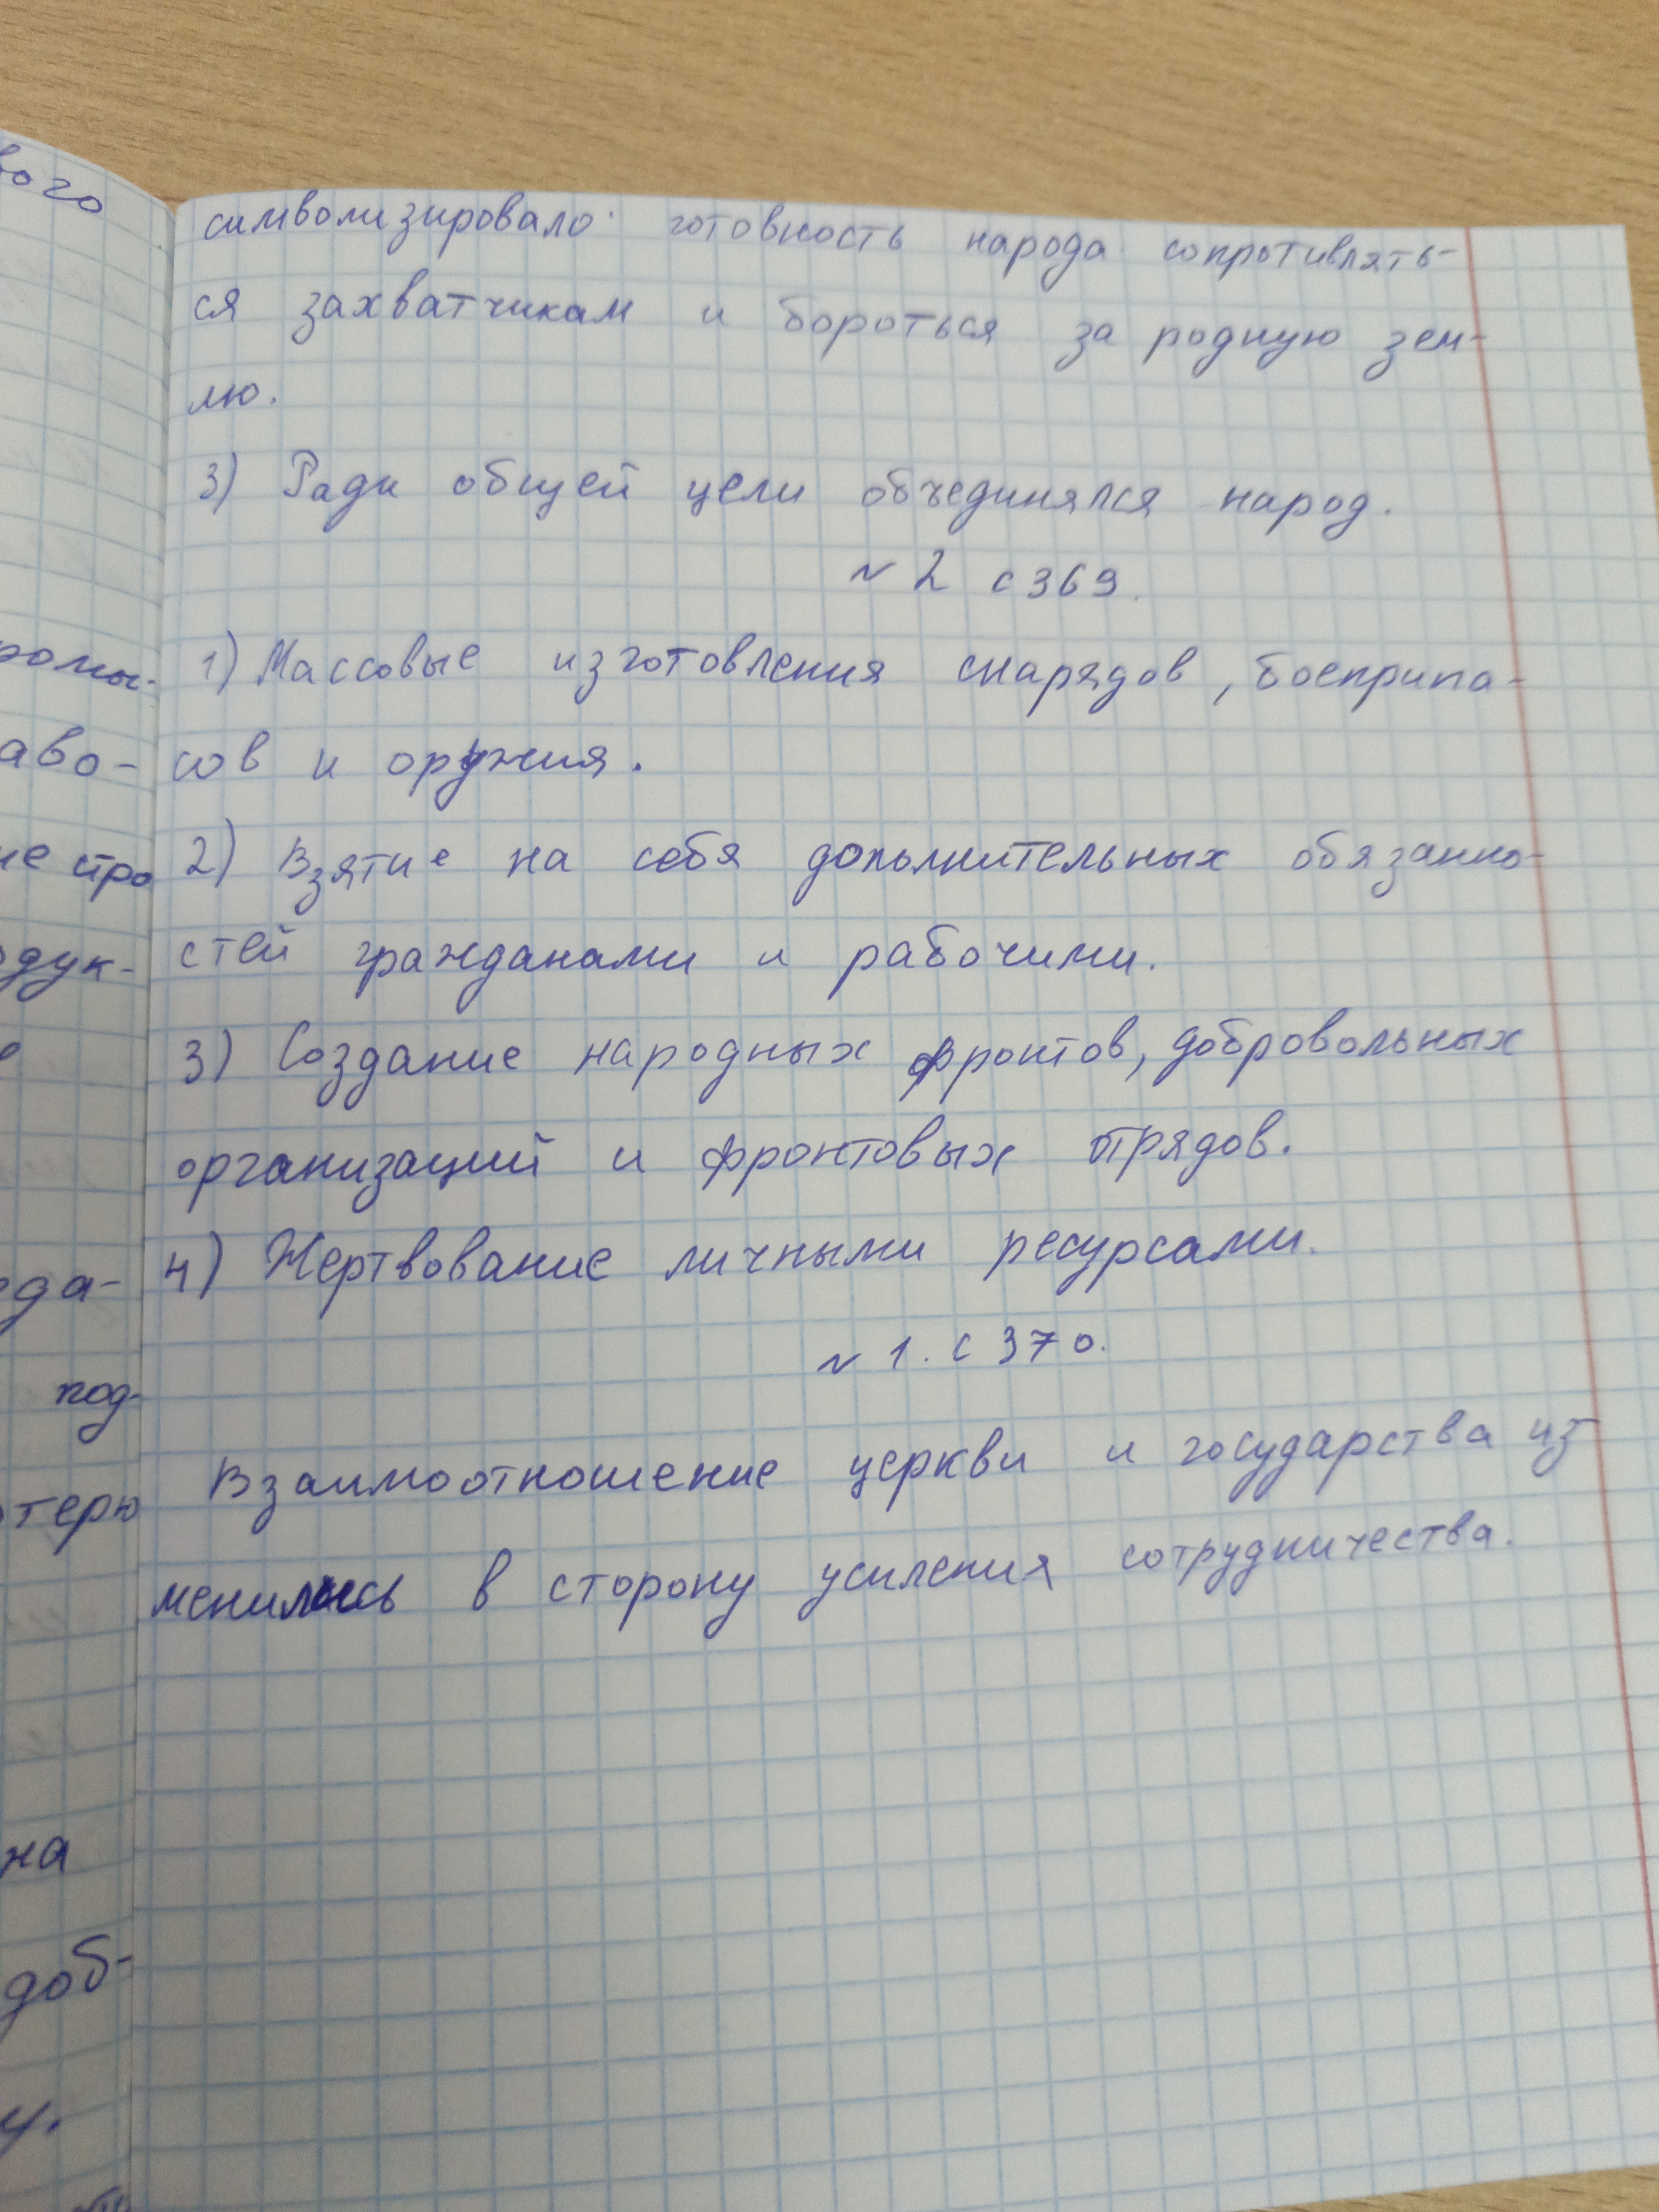 символизировало готовность народа сопротивлять-
ся захватчикам и бороться за родную зем-
лю.
3) Ради общей цели объединялся народ.
№ 2 с 369.
1) Массовые изготовления снарядов, боеприпа-
сов и оружия.
2) Взятие на себя дополнительных обязанно-
стей гражданами и рабочими.
3) Создание народных фронтов, добровольных
организаций и фронтовых отрядов.
4) Жертвование личными ресурсами.
№ 1. с 370.
Взаимоотношение церкви и государства из
менилось в сторону усиления сотрудничества.
вого
аво-
ие про
одук-
еда-
под-
отерю
на
доб-
у.